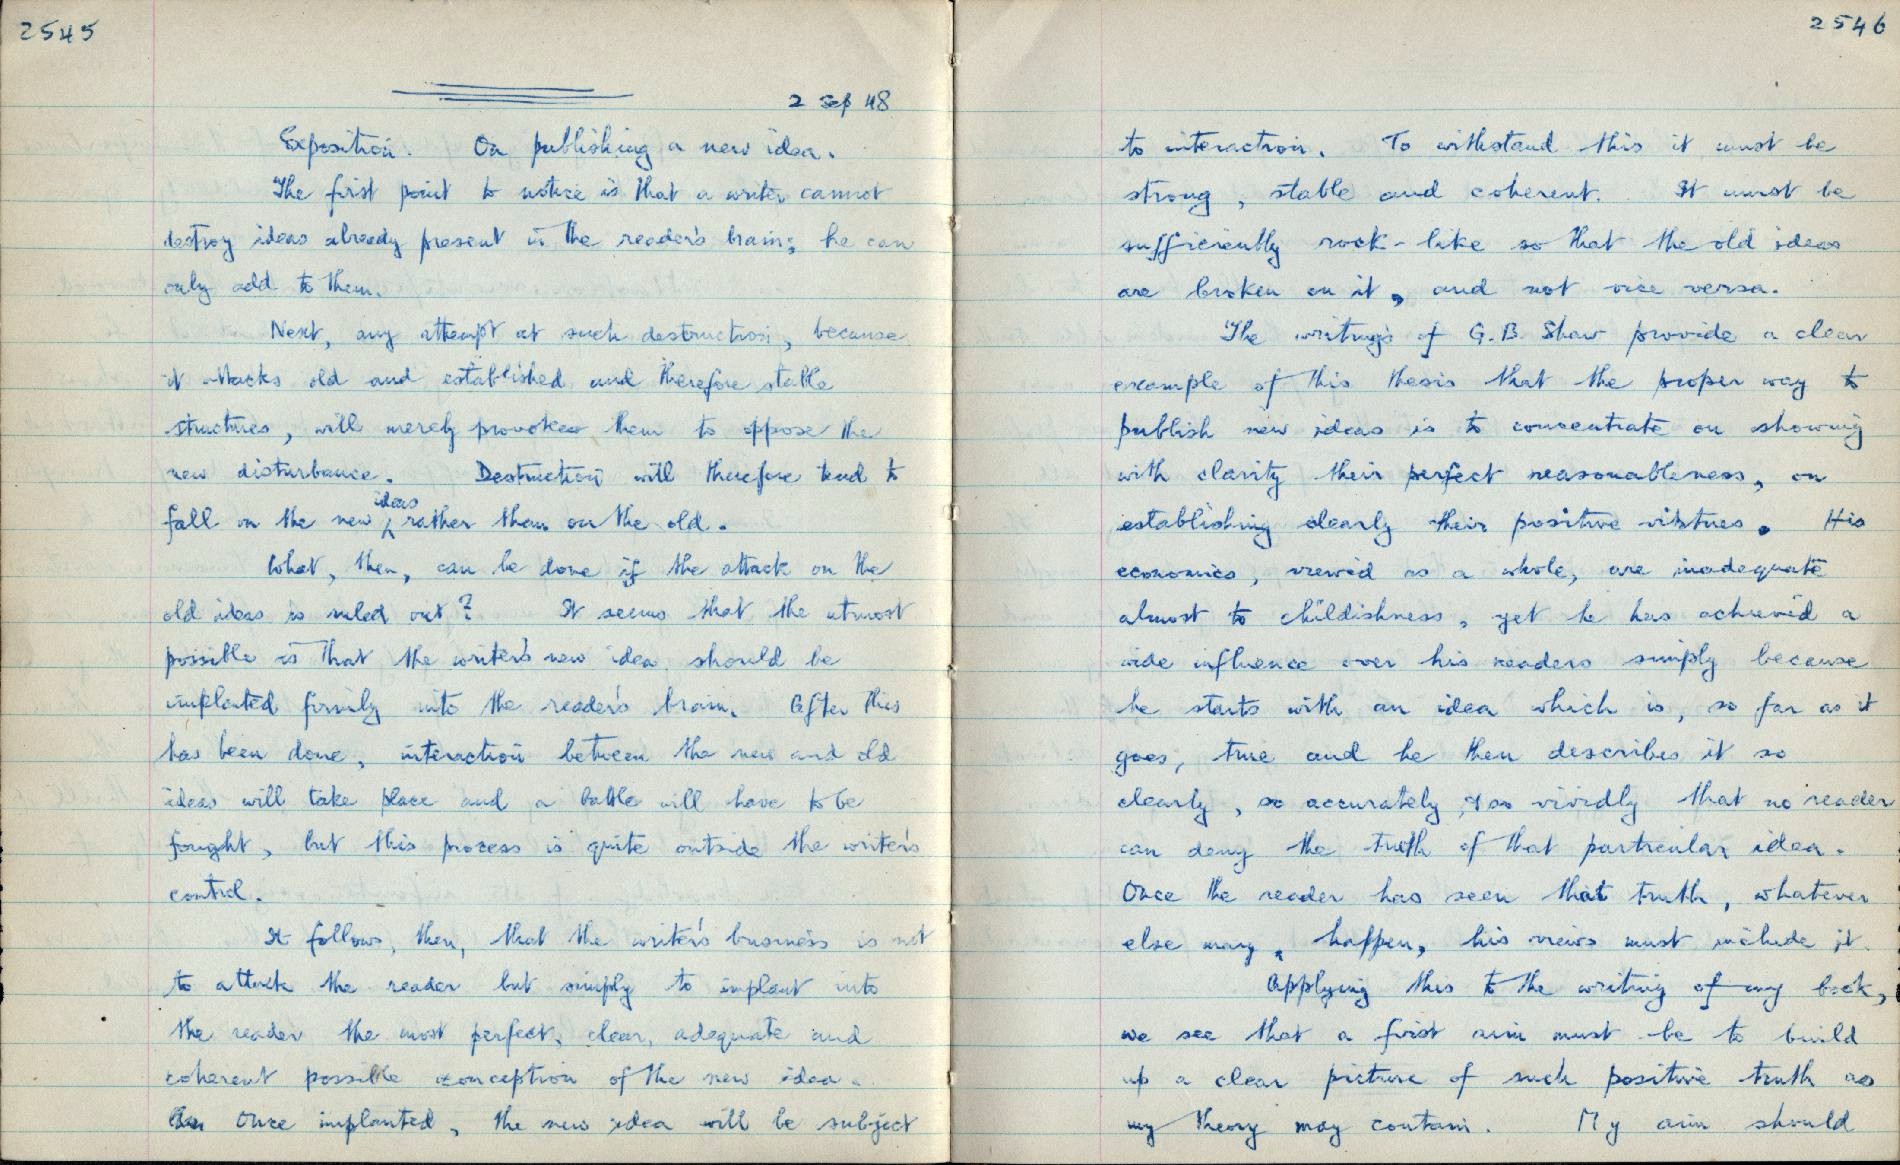 2545
2 Sep 48
Exposition. On publishing a new idea.
The first point to notice is that a writer cannot
destroy ideas already present in the reader's brain; he can
only add to them.
Next, any attempt at such destruction, because
it attacks old and established and therefore stable
structures, will merely provoke them to oppose the
new disturbance. Destruction will therefore tend to
fall on the new ideas rather than on the old.
What, then, can be done if the attack on the
old ideas is ruled out? It seems that the utmost
possible is that the writer's new idea should be
implanted firmly into the reader's brain. After this
has been done, interaction between the new and old
ideas will take place and a battle will have to be
fought, but this process is quite outside the writer's
control.
It follows, then, that the writer's business is not
to attack the reader but simply to implant into
the reader the most perfect, clear, adequate and
coherent possible conception of the new idea.
Once implanted, the new idea will be subject
2546
to interaction. To withstand this it must be
strong, stable and coherent. It must be
sufficiently rock-like so that the old ideas
are broken on it, and not vice versa.
The writings of G.B. Shaw provide a clear
example of this thesis that the proper way to
publish new ideas is to concentrate on showing
with clarity their perfect reasonableness, on
establishing clearly their positive virtues. His
economics, viewed as a whole, are inadequate
almost to childishness, yet he has achieved a
wide influence over his readers simply because
he starts with an idea which is, so far as it
goes, true and he then describes it so
clearly, so accurately, & so vividly that no reader
can deny the truth of that particular idea.
Once the reader has seen that truth, whatever
else may happen, his views must include it.
Applying this to the writing of my book,
we see that a first aim must be to build
up a clear picture of such positive truth as
my theory may contain. My aim should